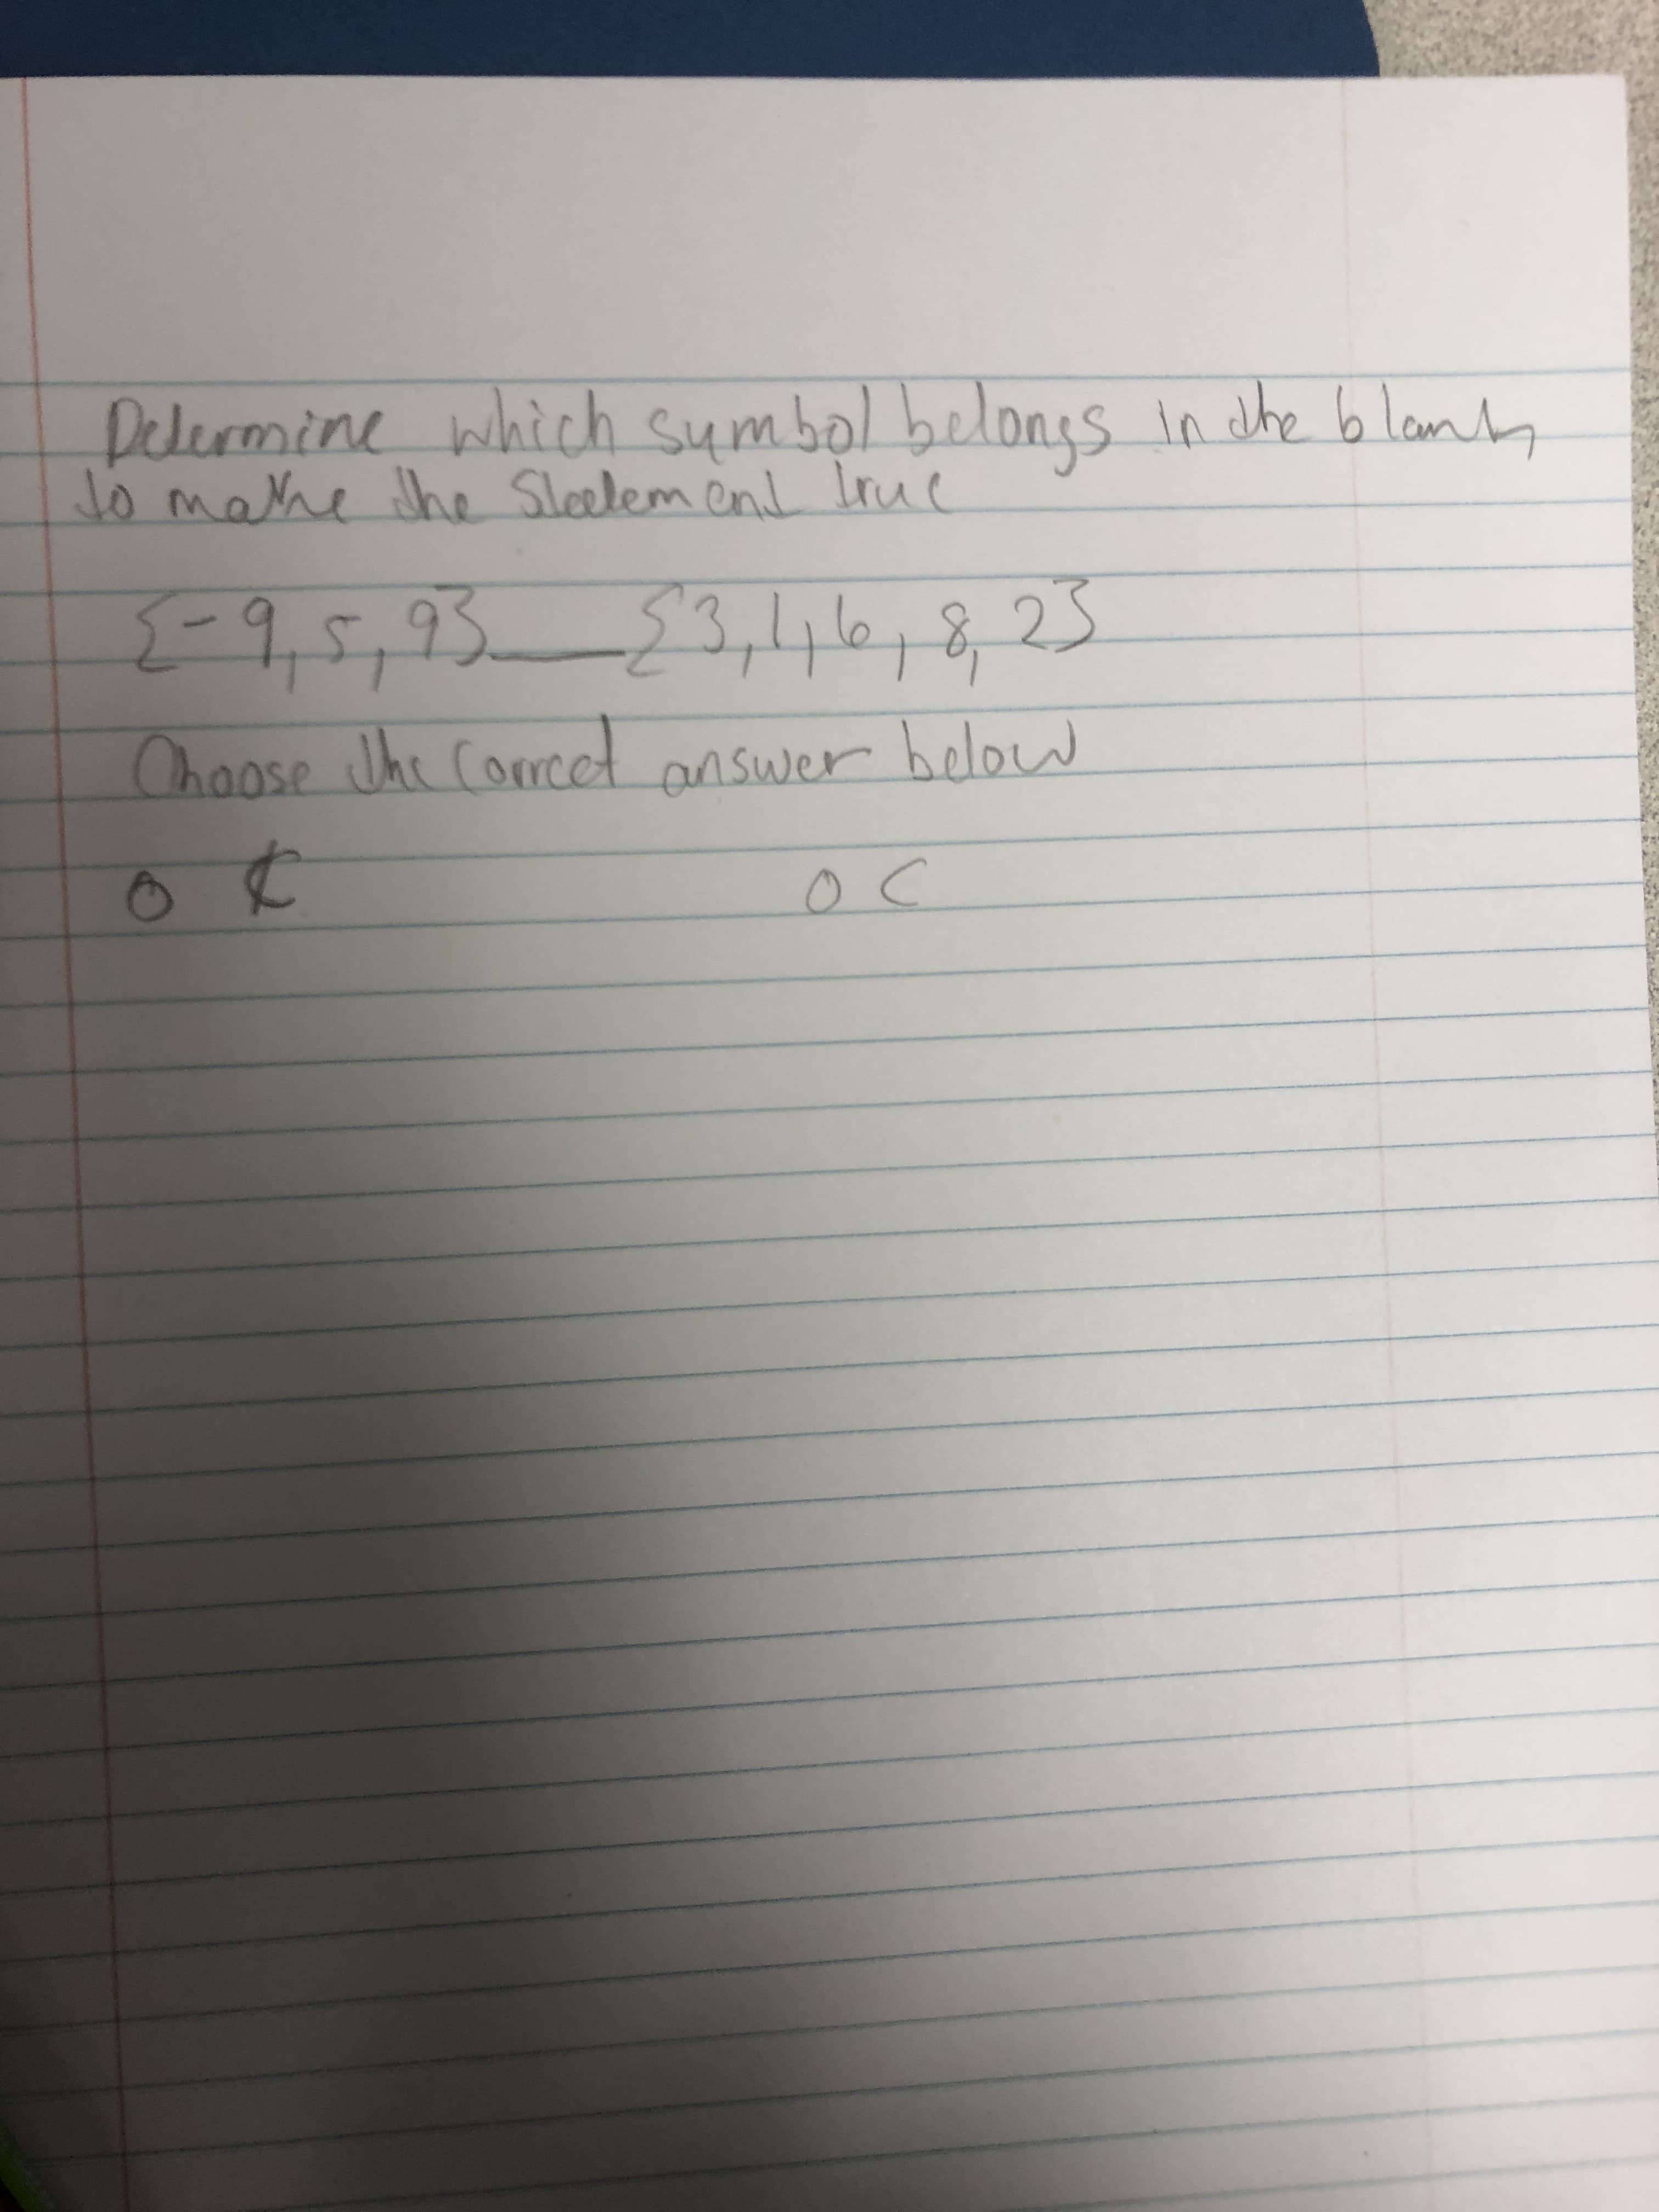 Determine which symbol belongs in the blank
to make the Statement true
{-9, 5, 9}___{3, 1, 6, 8, 2}
Choose the correct answer below
O ⊄ O ⊂